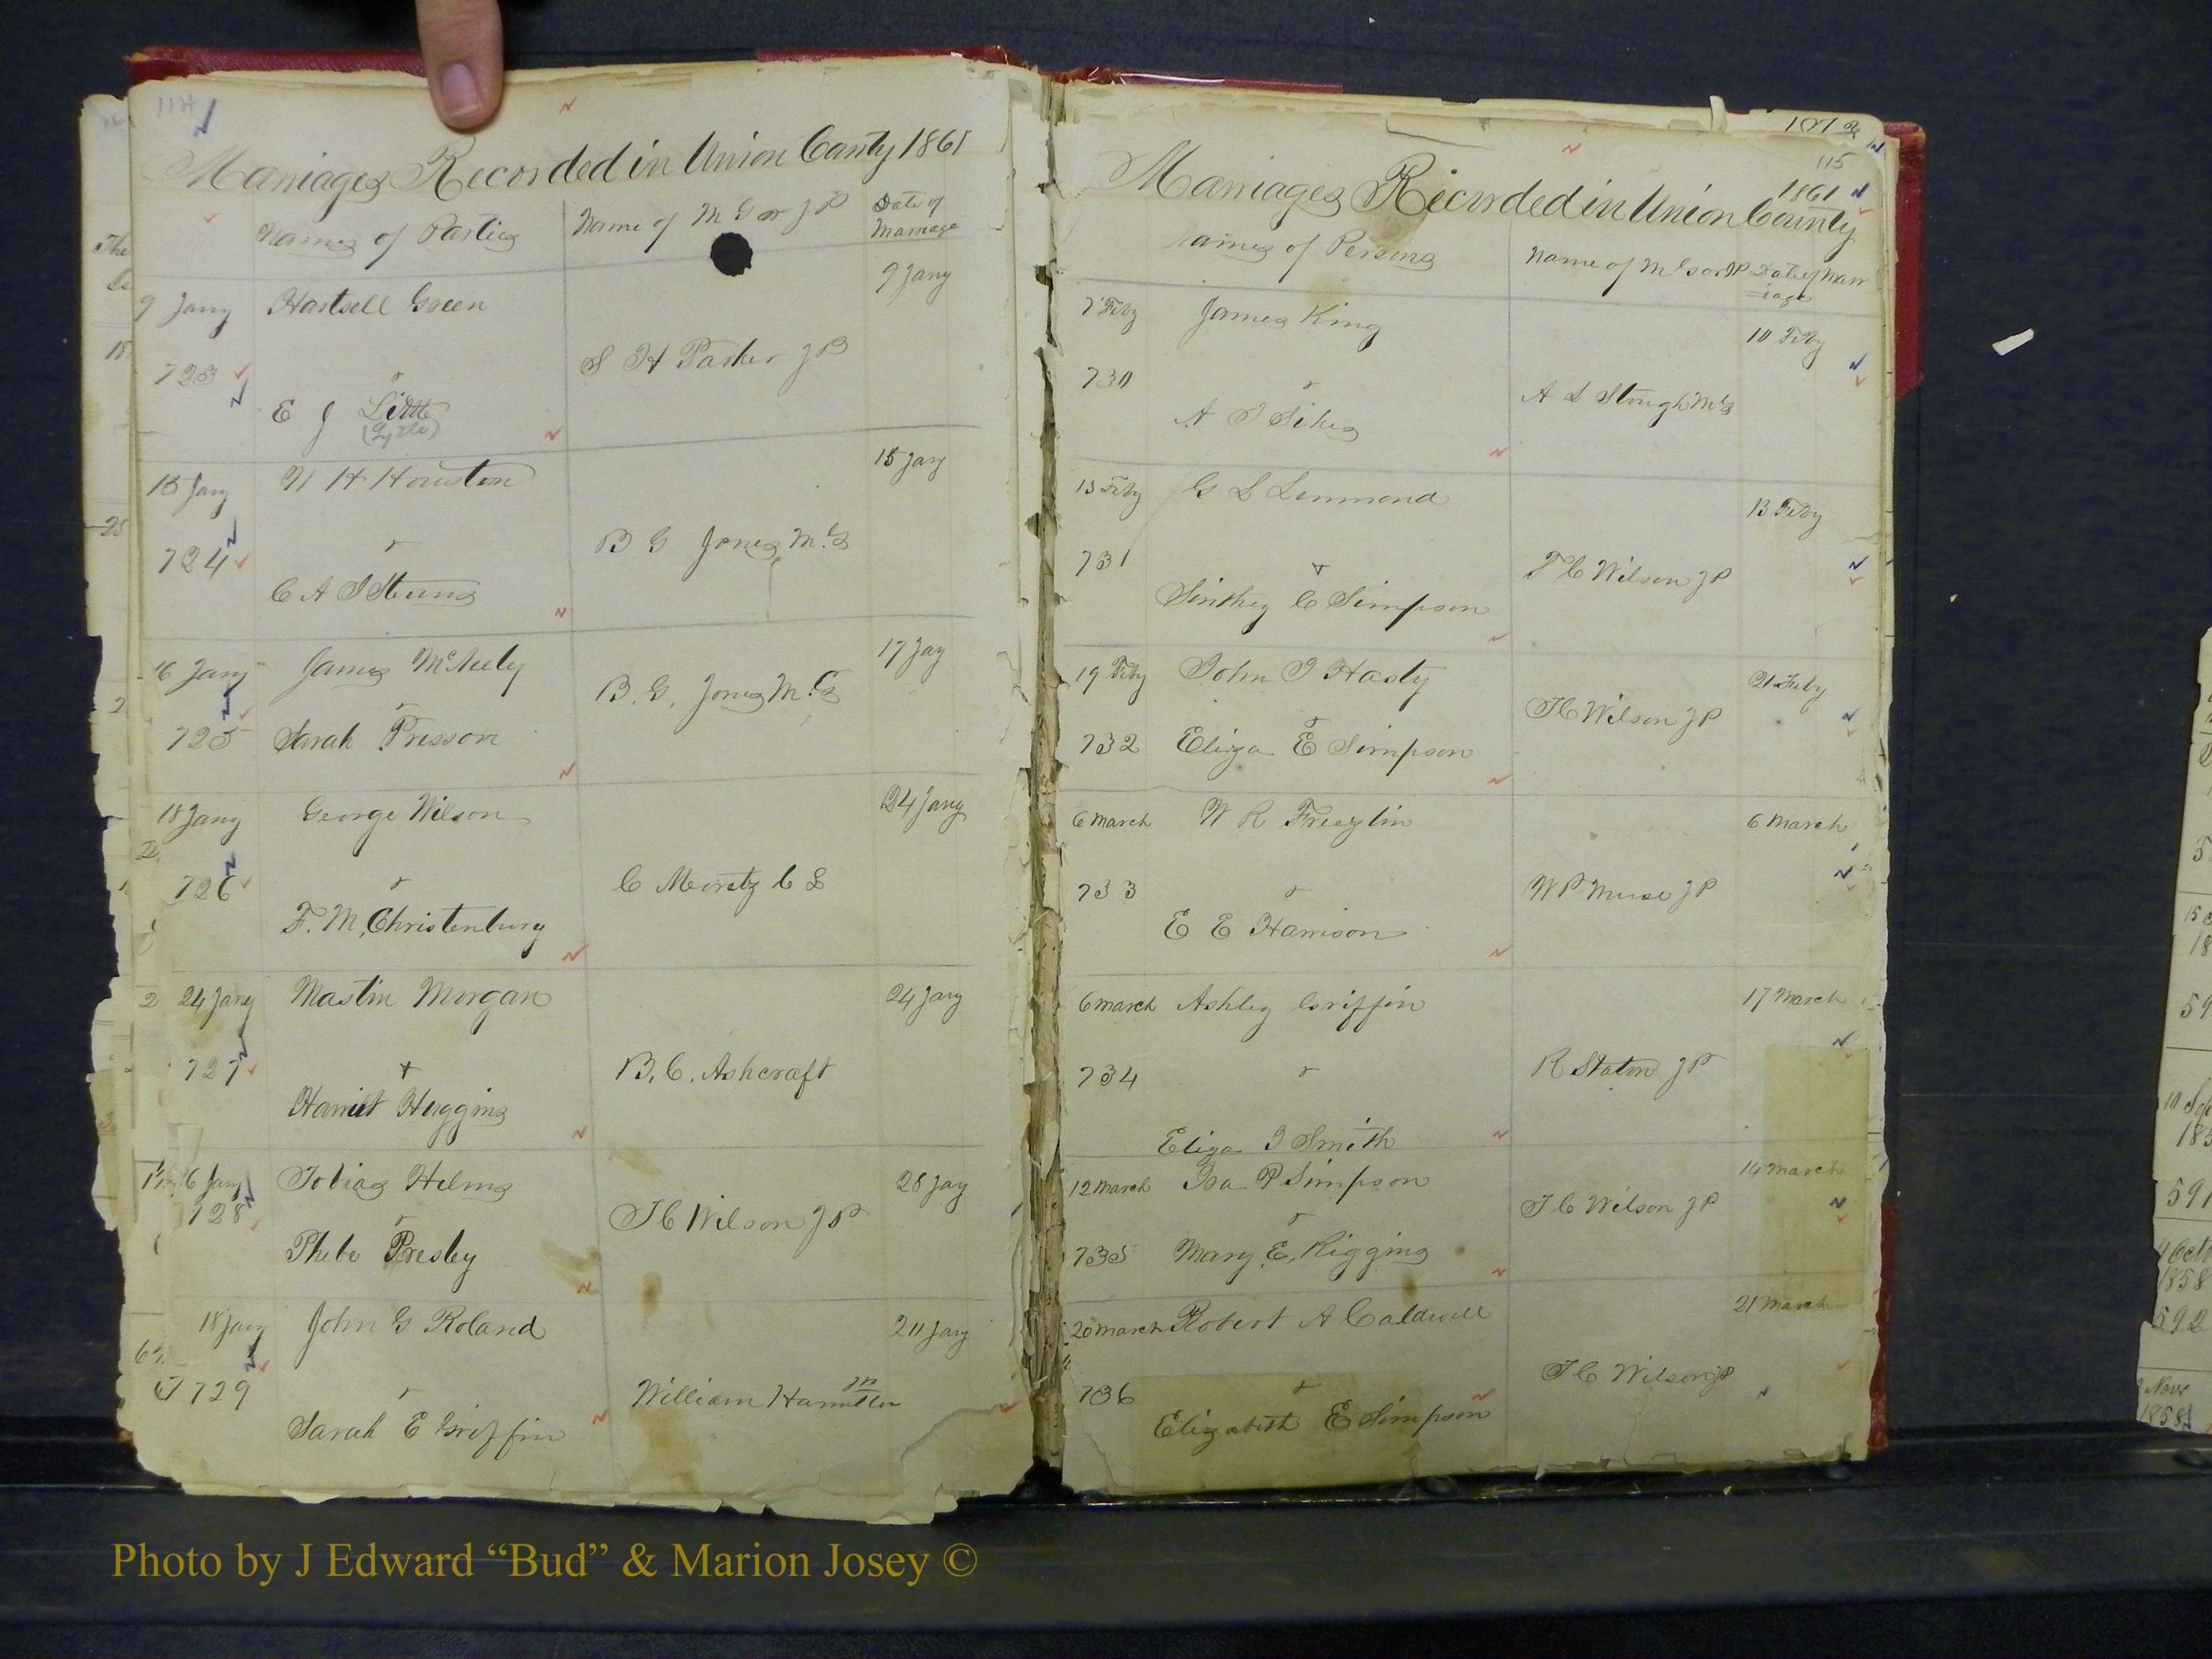 114
Marriages Recorded in Union County 1861
Names of Parties
Name of M G or J P
Date of Marriage
9 Jany
Hartsell Green
9 Jany
S H Parker J P
723
&
E J Little
(Lytle)
15 Jany
N H Houston
15 Jany
B G Jones M.G
724
&
C A J Stevens
16 Jany
James McNeely
17 Jay
B. G. Jones M.G
725
&
Sarah Presson
18 Jany
George Wilson
24 Jany
C M
726
&
F. M. Christenbury
24 Jany
Mastin Morgan
24 Jany
B. C. Ashcraft
727
&
Harriet Huggins
6 Jany
Tobias Helms
28 Jay
728
&
T C Wilson J P
Phebe Presley
18 Jany
John G Roland
20 Jany
William Hamilton
JP
729
&
Sarah E Griffin
115
Marriages Recorded in Union County
1861
ames of Persons
Name of M G or J P
Date of Marr
=iage
7 Feby
James King
10 Feby
A L Stough M G
730
&
A J Sikes
13 Feby
G L Lemmond
13 Feby
T C Wilson J P
731
&
Sinthey C Simpson
19 Feby
John J Hasty
21 Feby
T C Wilson J P
732
&
Eliza E Simpson
6 March
W R
6 March
W P Muse J P
733
&
E E Harrison
6 March
Ashley Griffin
17 March
R Staton J P
734
&
Eliza J Smith
12 March
P Simpson
14 March
T C Wilson J P
735
&
Mary E. Riggins
20 March
Robert A Caldwell
21 March
T C Wilson JP
736
&
Elizabeth E Simpson
15
18
59
10 Sep
185
591
4 Oct
1858
592
Nov
1858
Photo by J Edward “Bud” & Marion Josey ©